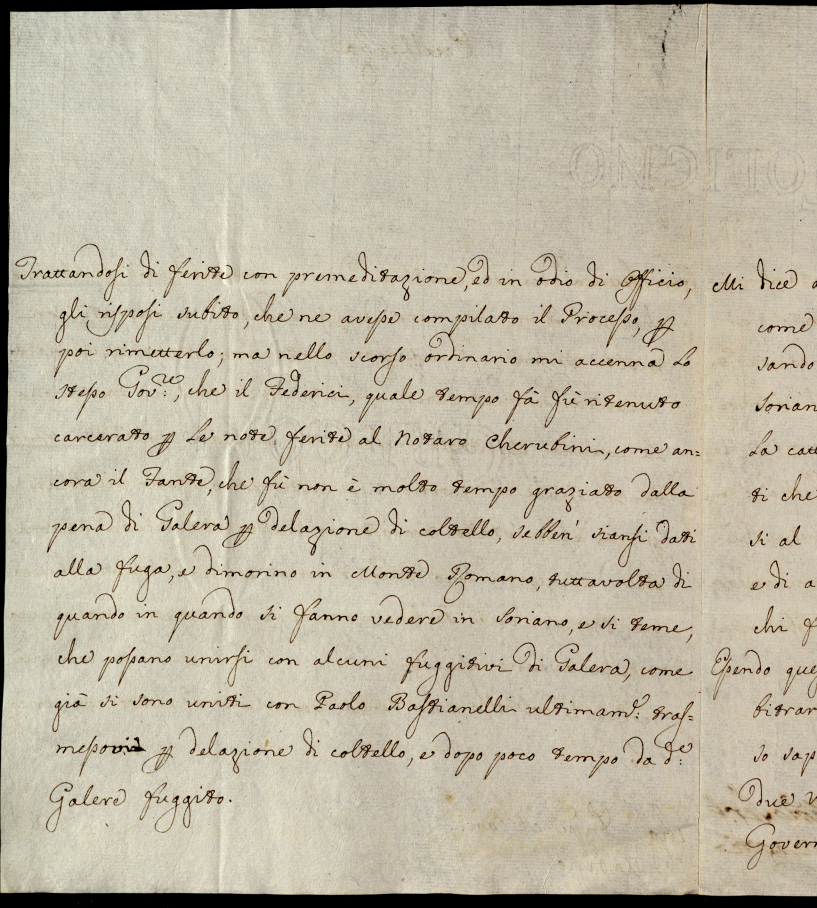 Trattandosi di ferite con premeditazione, ed in odio di Officio,
gli risposi subito, che ne avesse compilato il Processo, p
poi rimetterlo; ma nello scorso ordinario mi accenna Lo
stesso Gov.re, che il Federici, quale tempo fà fù ritenuto
carcerato p Le note ferite al Notaro Cherubini, come an=
cora il Fante, che fù non è molto tempo graziato dalla
pena di Galera p delazione di coltello, sebben' siansi dati
alla fuga, e dimorino in Monte Romano, tuttavolta di
quando in quando si fanno vedere in Soriano, e si teme,
che possano unirsi con alcuni fuggitivi di Galera, come
già si sono uniti con Paolo Bastianelli ultimam.e: tras=
messovi p delazione di coltello, e dopo poco tempo da d.e:
Galere fuggito.
Mi dice
come
sando
sorian
La catt
ti che
si al
e di a
chi f
Essendo que
bitrar
so sap
due
Govern